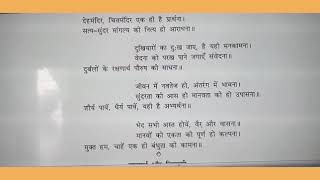 देहमंदिर, चित्तमंदिर एक ही है प्रार्थना।
सत्य-सुंदर मांगल्य की नित्य हो आराधना॥
दुखियारों का दुःख जाए, है यही मनकामना।
वेदना को परख पाने जगाएँ संवेदना॥
दुर्बलों के रक्षणार्थ पौरुष की साधना॥
जीवन में नवतेज हो, अंतरंग में भावना।
सुंदरता की आस हो मानवता की हो उपासना॥
शौर्य पावें, धैर्य पावें, यही है अभ्यर्थना॥
भेद सभी अस्त होवें, वैर और वासना।
मानवों की एकता की पूर्ण हो कल्पना।
मुक्त हम, चाहें एक ही बंधुता की कामना॥